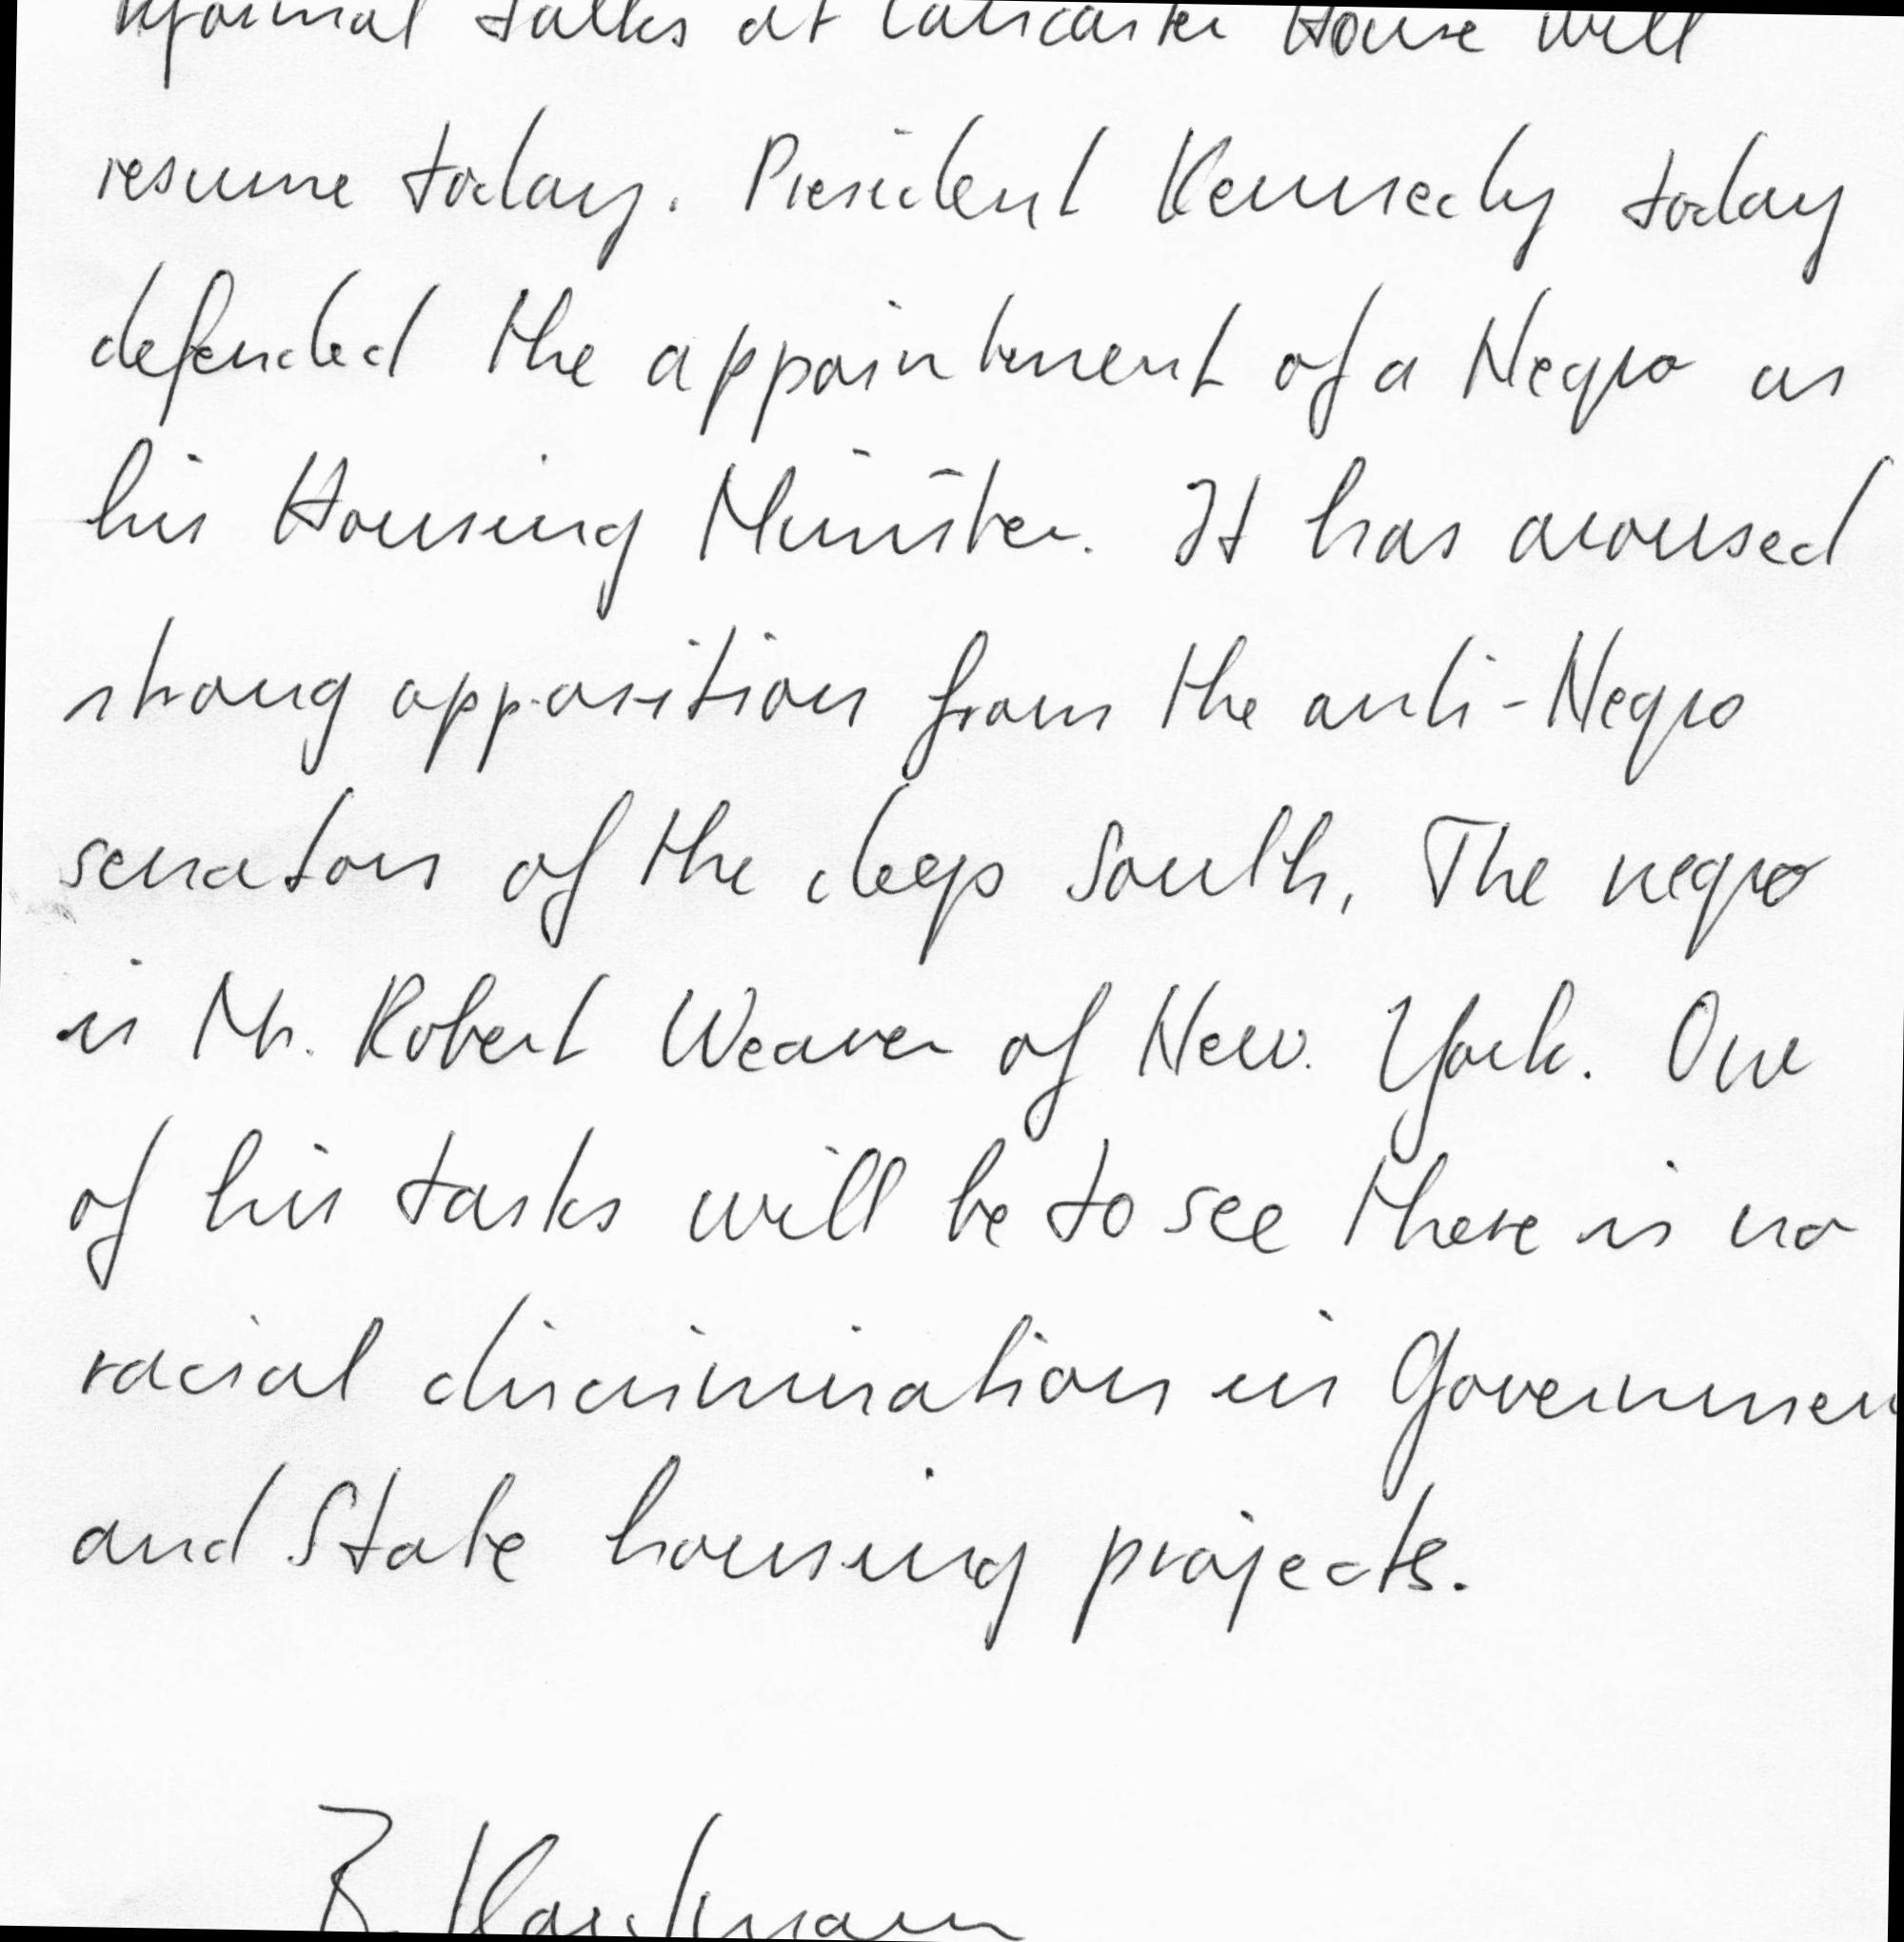 informal talks at Lancaster House will
resume today. President Kennedy today
defended the appointment of a Negro as
his Housing Minister. It has aroused
strong opposition from the anti-Negro
senators of the deep South, The negro
is Mr. Robert Weaver of New. York. One
of his tasks will be to see there is no
racial discrimination in Governmen
and State housing projects.